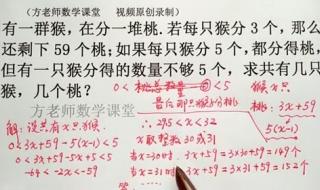 （方老师数学课堂 视频原创录制）
有一群猴，在分一堆桃.若每只猴分3个，那么
还剩下59个桃；如果每只猴分5个，都分得桃，
但有一只猴分得的数量不够5个，求共有几只
猴，几个桃？
方老师数学课堂
猴x只
桃：3x+59
5(x-1)
解：设共有x只猴.
0<3x+59-5(x-1)<5
0<3x+59-5x+5<5
-64<-2x<-59
∴ 29.5<x<32
x取整数30或31
当x=30时，3x+59=3×30+59=149个
当x=31时 3x+59=3×31+59=152个
答